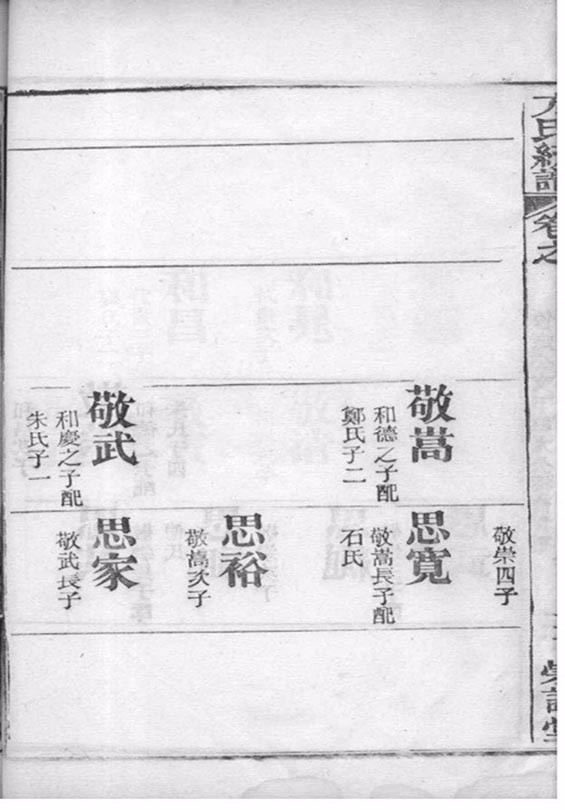 方氏統譜
卷之
敬嵩
和德之子配
鄭氏子二
敬武
和慶之子配
朱氏子一
敬崇四子
思寬
敬嵩長子配
石氏
思裕
敬嵩次子
思家
敬武長子